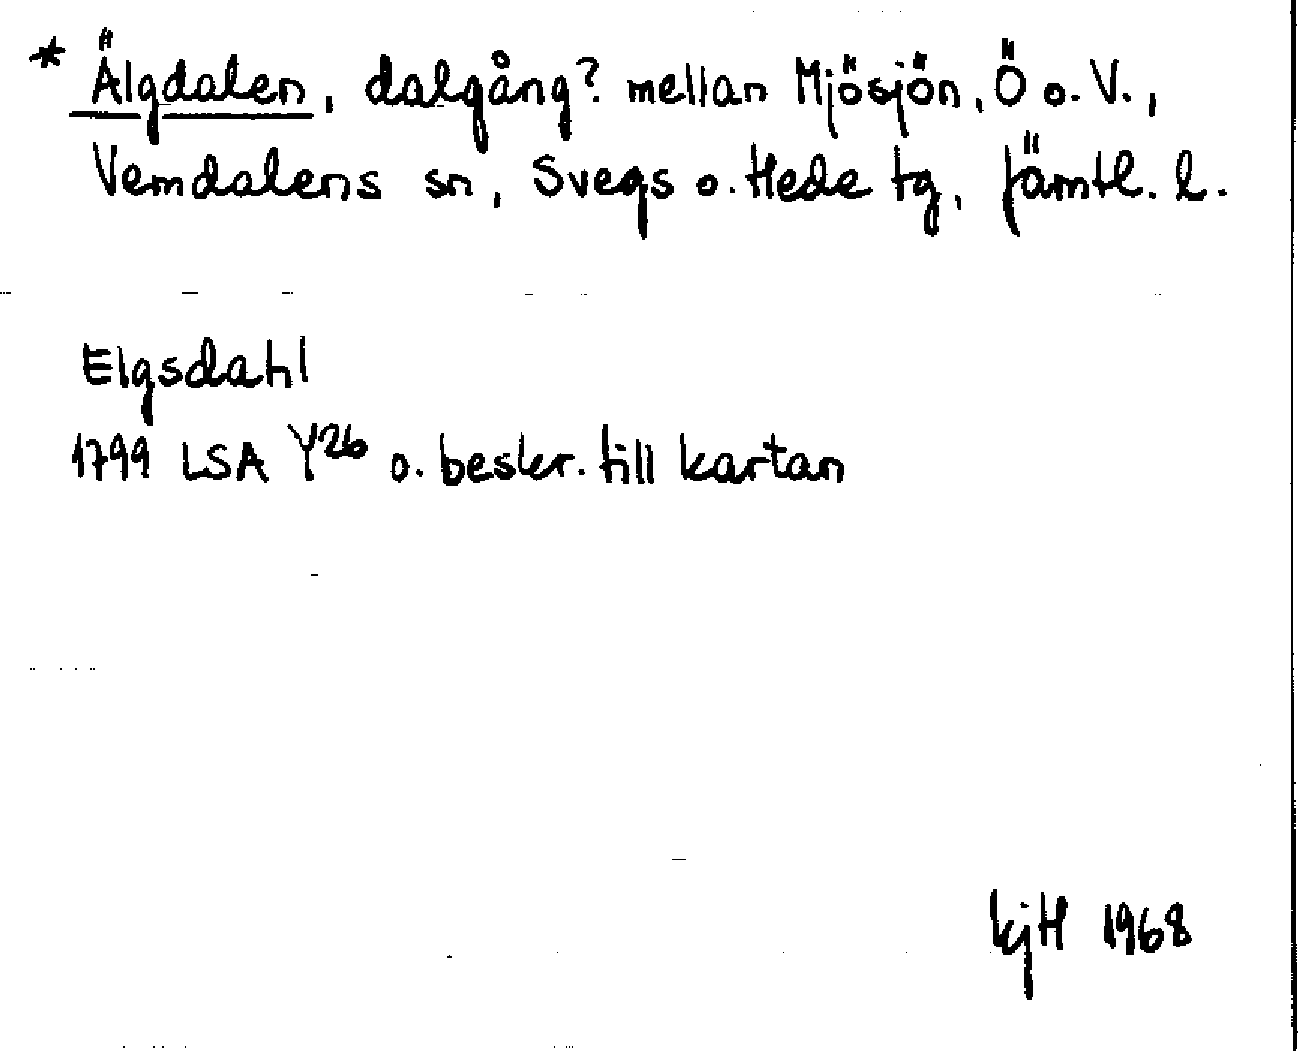 * Älgdalen, dalgång? mellan Mjösjön, Ö o. V.,
Vemdalens sn, Svegs o. Hede tg, Jämtl. l.
Elgsdahl
1799 LSA Y26 o. beskr. till kartan
kjH 1968